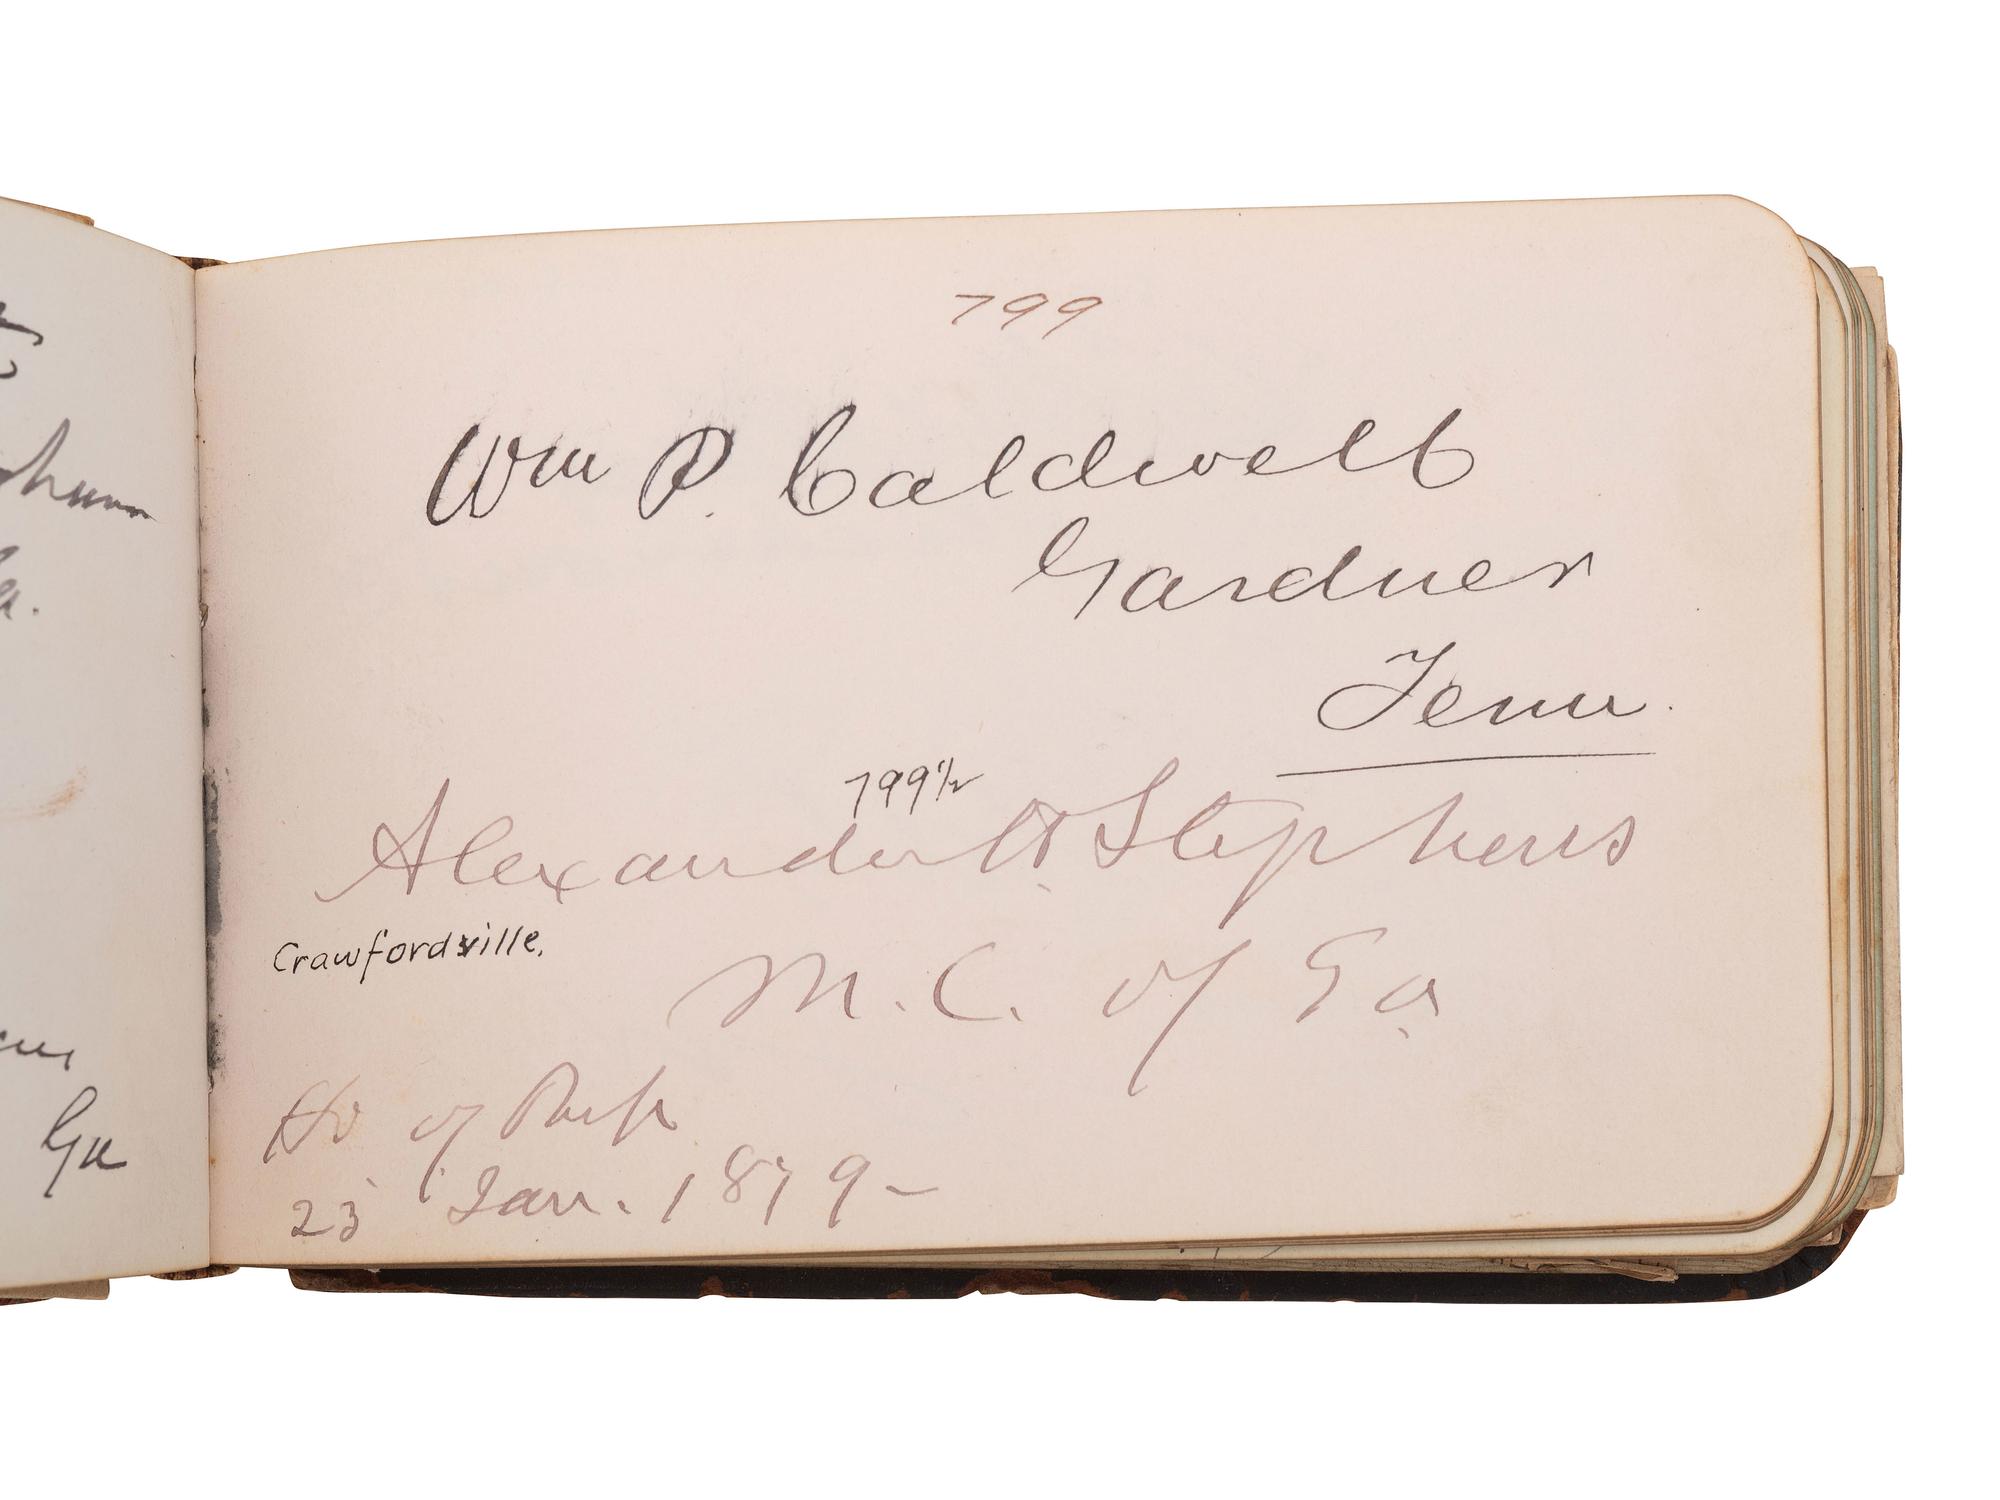 Ga
799
Wm P. Caldwell
Gardner
Tenn.
799½
Alexander H. Stephens
Crawfordville.
M. C. of Ga
Ho of Reps
23 Jan. 1879-